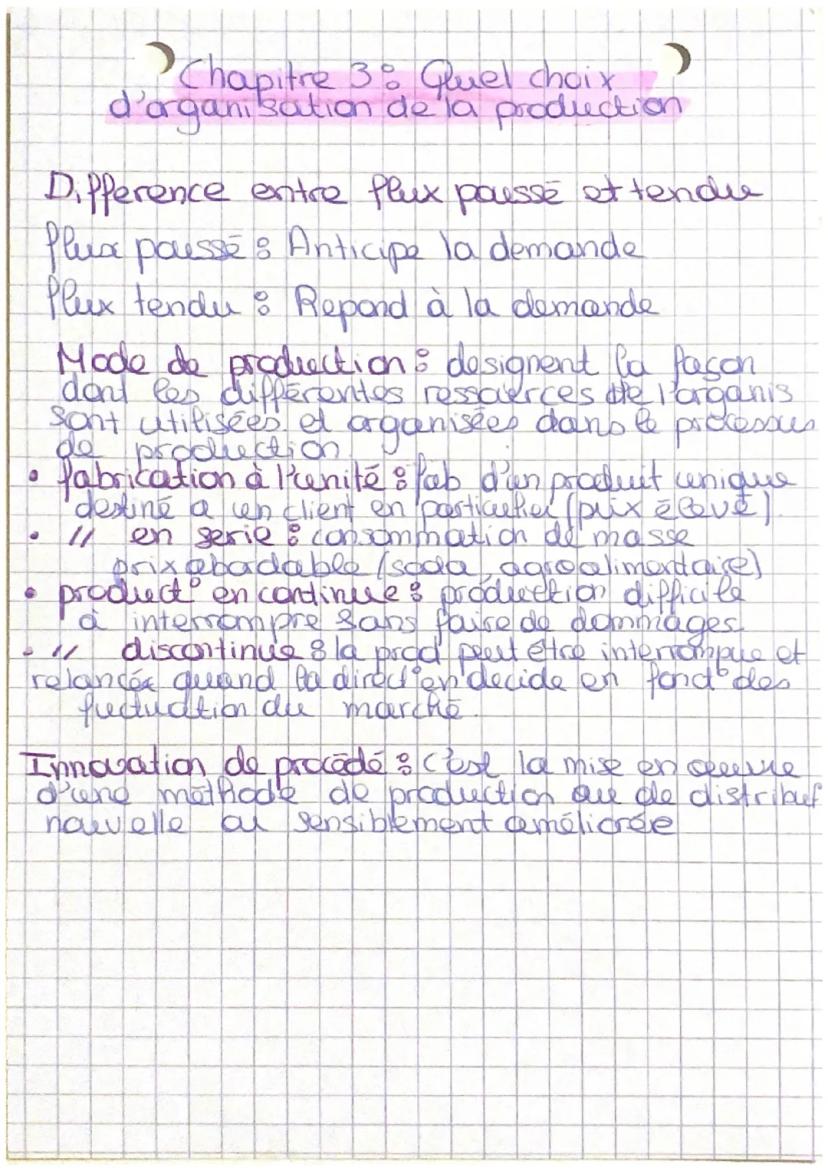 Chapitre 3 : Quel choix
d'organisation de la production
Difference entre flux poussé et tendu
flux poussé : Anticipe la demande
flux tendu : Repond à la demande
Mode de production : designent la façon
dont les différentes ressources de l'organis
sont utilisées et organisées dans le processus
de production
• fabrication à l'unité : fab d'un produit unique
destiné a un client en particulier (prix élevé).
• // en serie : consommation de masse
prix abadable (soda, agroalimentaire)
• product° en continue : production difficile
à interrompre sans faire de dommages.
• // discontinue : la prod peut être interrompue et
relancée quand la direct° en decide en fonct° des
fuctuation du marché.
Innovation de procédé : c'est la mise en œuvre
d'une méthode de production ou de distribut
nouvelle ou sensiblement améliorée